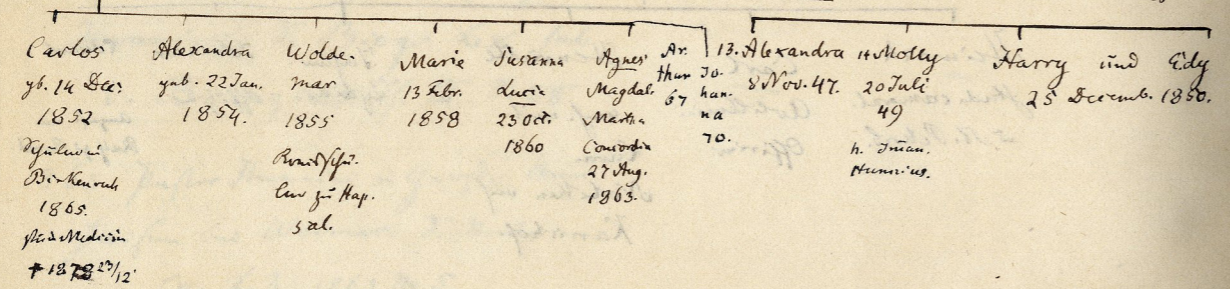 Carlos
gb. 14 Dec:
1852
Birkenruh
1865.
Medicin
† 1878 23/12
Alexandra
geb. 22 Jan.
1854.
Wolde-
mar
1855
zu Hap.
sal.
Marie
13 Febr.
1858
Susanna
Lucie
23 Oct.
1860
Agnes
Magdal.
Martha
Concordia
27 Aug.
1863.
Ar.
thur
67
Jo.
han.
na
70.
13. Alexandra
8 Nov. 47.
14 Molly
20 Juli
49
h. Iman.
Hunnius.
Harry und Edy
25 Decemb. 1850.